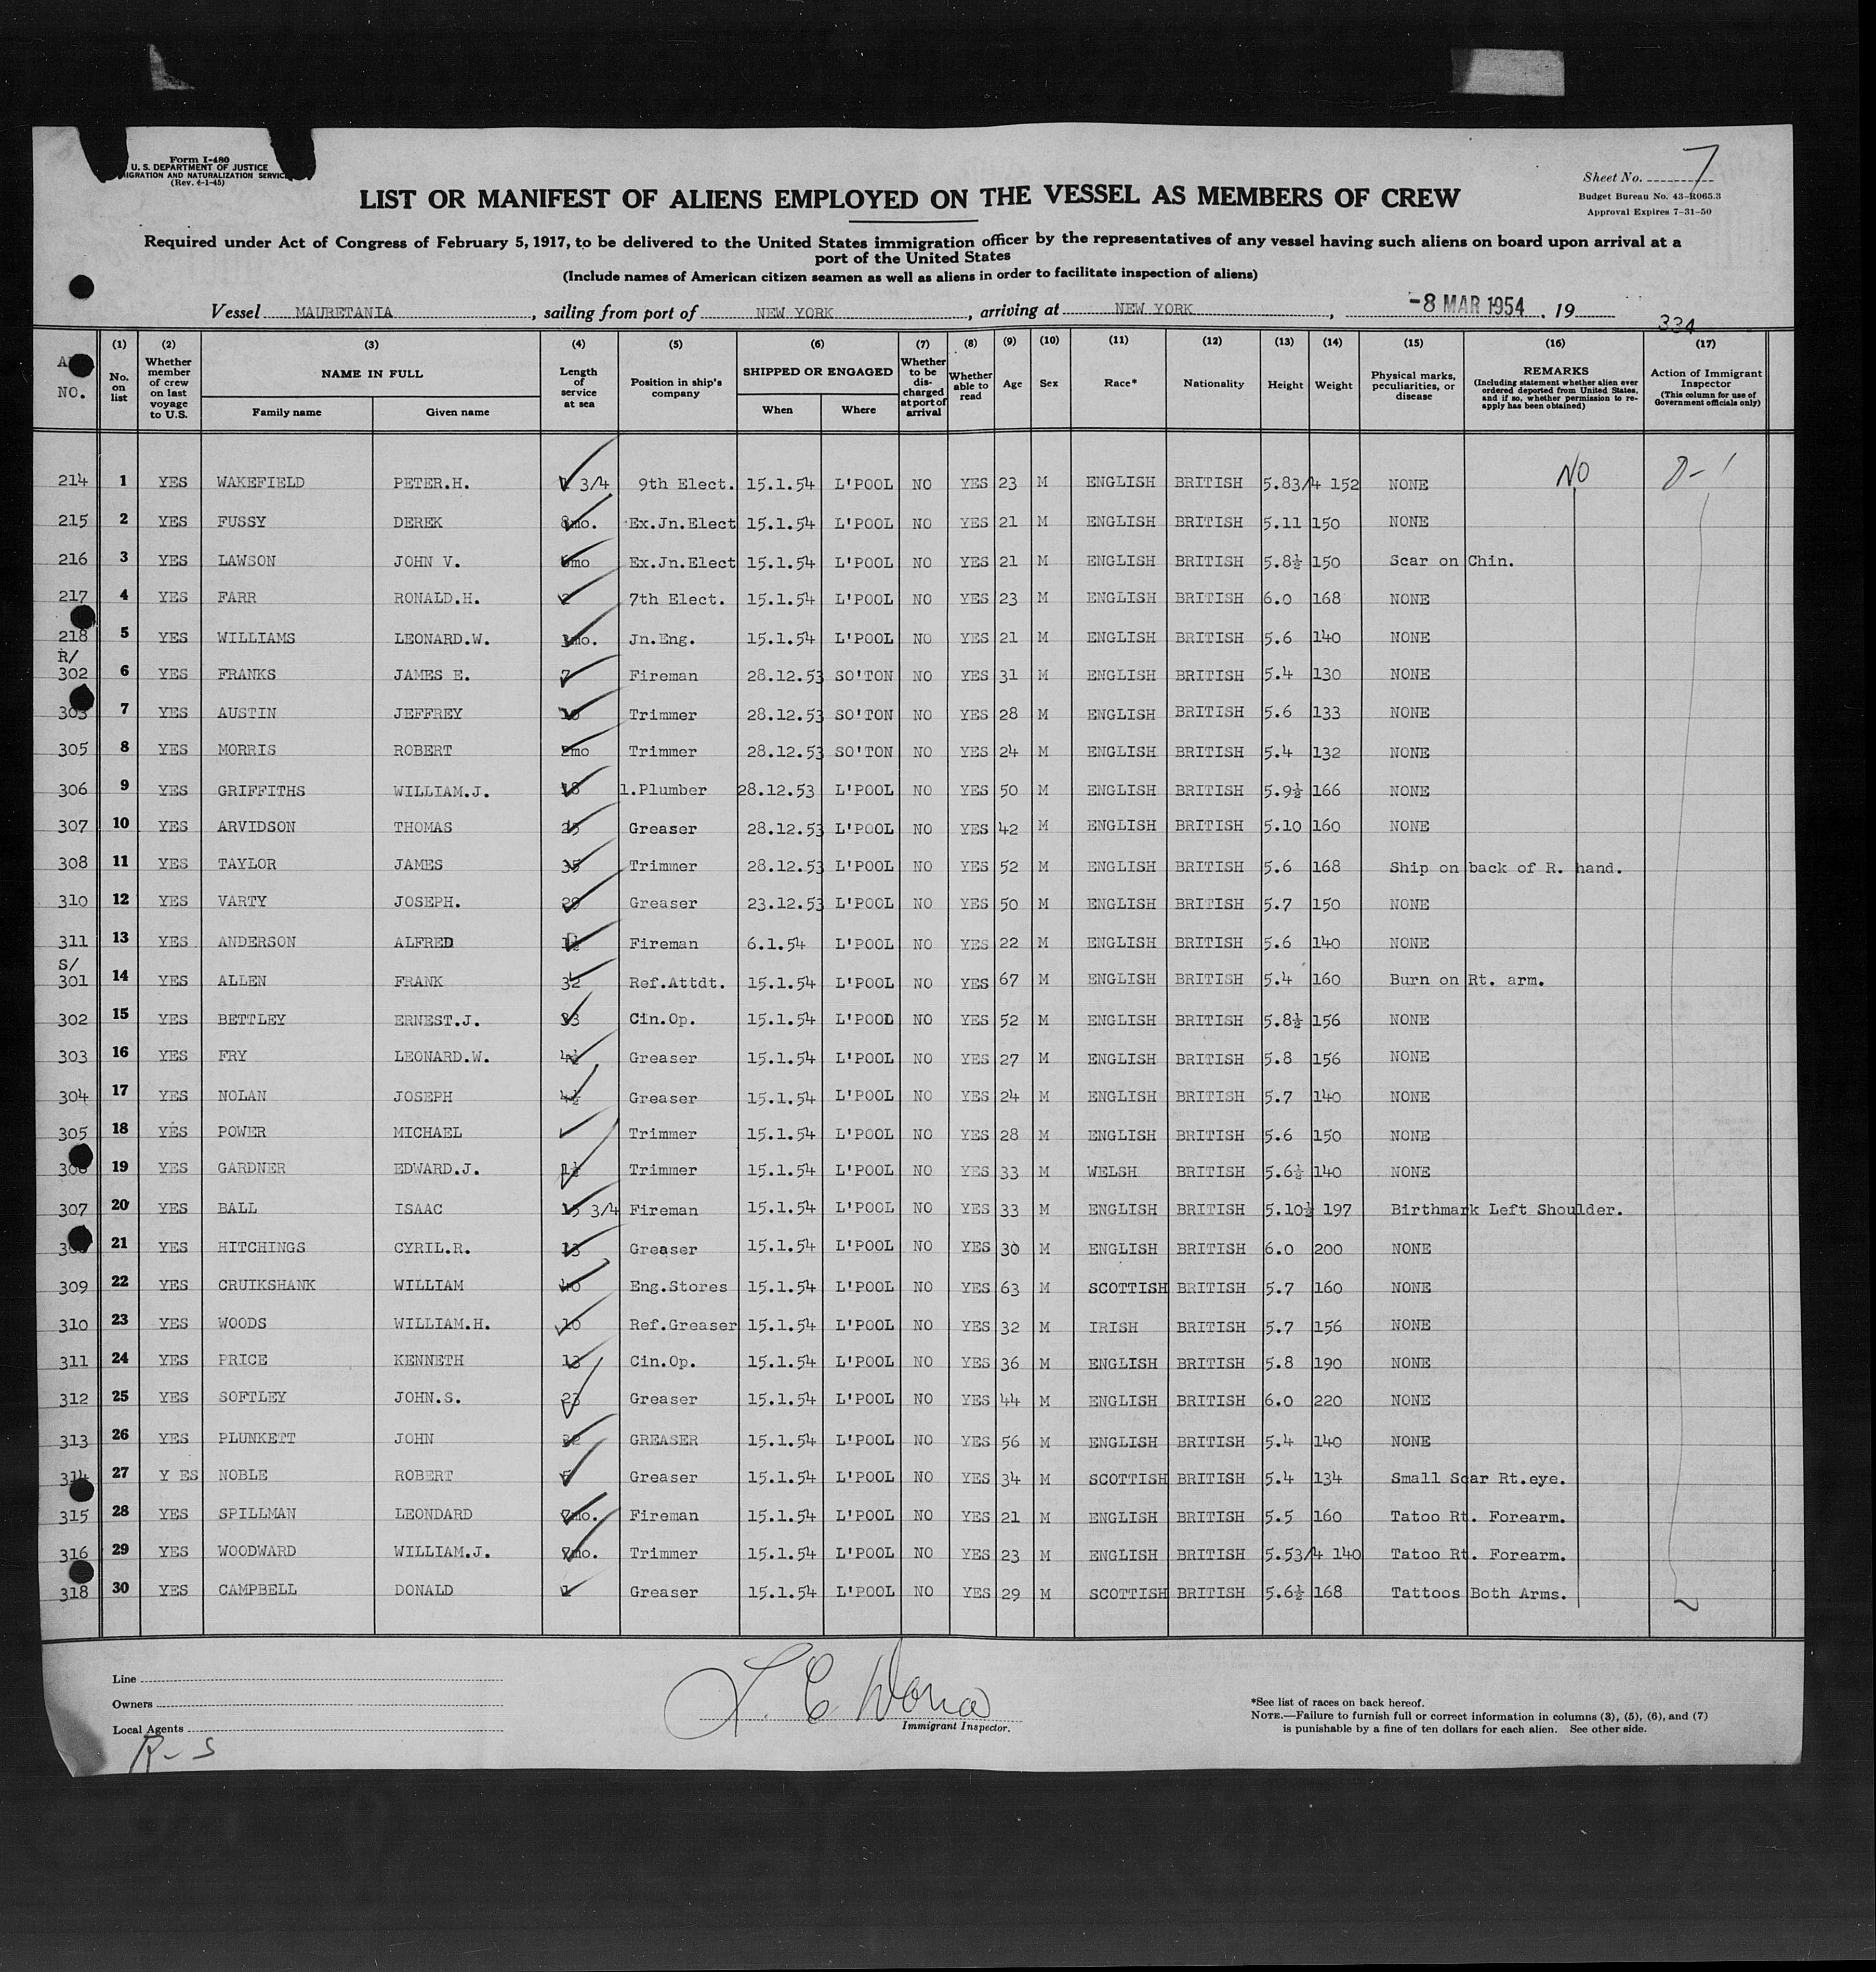 Form I-480
U. S. DEPARTMENT OF JUSTICE
IGRATION AND NATURALIZATION SERVIC
(Rev. 4-1-45)
Sheet No. 7
Budget Bureau No. 43-R065.3
Approval Expires 7-31-50
LIST OR MANIFEST OF ALIENS EMPLOYED ON THE VESSEL AS MEMBERS OF CREW
Required under Act of Congress of February 5, 1917, to be delivered to the United States immigration officer by the representatives of any vessel having such aliens on board upon arrival at a
port of the United States
(Include names of American citizen seamen as well as aliens in order to facilitate inspection of aliens)
Vessel MAURETANIA, sailing from port of NEW YORK, arriving at NEW YORK, -8 MAR 1954, 19
334
NO. (1) No. on list (2) Whether member of crew on last voyage to U.S. (3) NAME IN FULL Family name Given name (4) Length of service at sea (5) Position in ship's company (6) SHIPPED OR ENGAGED When Where (7) Whether to be discharged at port of arrival (8) Whether able to read (9) Age (10) Sex (11) Race* (12) Nationality (13) Height (14) Weight (15) Physical marks, peculiarities, or disease (16) REMARKS (Including statement whether alien ever ordered deported from United States, and if so, whether permission to re-apply has been obtained) (17) Action of Immigrant Inspector (This column for use of Government officials only)
214 1 YES WAKEFIELD PETER.H. 3/4 9th Elect. 15.1.54 L'POOL NO YES 23 M ENGLISH BRITISH 5.83/4 152 NONE NO
215 2 YES FUSSY DEREK 8mo. Ex.Jn.Elect 15.1.54 L'POOL NO YES 21 M ENGLISH BRITISH 5.11 150 NONE
216 3 YES LAWSON JOHN V. Ex.Jn.Elect 15.1.54 L'POOL NO YES 21 M ENGLISH BRITISH 5.8½ 150 Scar on Chin.
217 4 YES FARR RONALD.H. 2 7th Elect. 15.1.54 L'POOL NO YES 23 M ENGLISH BRITISH 6.0 168 NONE
218 5 YES WILLIAMS LEONARD.W. Jn.Eng. 15.1.54 L'POOL NO YES 21 M ENGLISH BRITISH 5.6 140 NONE
R/
302 6 YES FRANKS JAMES E. 7 Fireman 28.12.53 SO'TON NO YES 31 M ENGLISH BRITISH 5.4 130 NONE
303 7 YES AUSTIN JEFFREY Trimmer 28.12.53 SO'TON NO YES 28 M ENGLISH BRITISH 5.6 133 NONE
305 8 YES MORRIS ROBERT Trimmer 28.12.53 SO'TON NO YES 24 M ENGLISH BRITISH 5.4 132 NONE
306 9 YES GRIFFITHS WILLIAM.J. 1.Plumber 28.12.53 L'POOL NO YES 50 M ENGLISH BRITISH 5.9½ 166 NONE
307 10 YES ARVIDSON THOMAS Greaser 28.12.53 L'POOL NO YES 42 M ENGLISH BRITISH 5.10 160 NONE
308 11 YES TAYLOR JAMES 35 Trimmer 28.12.53 L'POOL NO YES 52 M ENGLISH BRITISH 5.6 168 Ship on back of R. hand.
310 12 YES VARTY JOSEPH. Greaser 23.12.53 L'POOL NO YES 50 M ENGLISH BRITISH 5.7 150 NONE
311 13 YES ANDERSON ALFRED Fireman 6.1.54 L'POOL NO YES 22 M ENGLISH BRITISH 5.6 140 NONE
S/
301 14 YES ALLEN FRANK 32 Ref.Attdt. 15.1.54 L'POOL NO YES 67 M ENGLISH BRITISH 5.4 160 Burn on Rt. arm.
302 15 YES BETTLEY ERNEST.J. 33 Cin.Op. 15.1.54 L'POOL NO YES 52 M ENGLISH BRITISH 5.8½ 156 NONE
303 16 YES FRY LEONARD.W. 4½ Greaser 15.1.54 L'POOL NO YES 27 M ENGLISH BRITISH 5.8 156 NONE
304 17 YES NOLAN JOSEPH 4½ Greaser 15.1.54 L'POOL NO YES 24 M ENGLISH BRITISH 5.7 140 NONE
305 18 YES POWER MICHAEL Trimmer 15.1.54 L'POOL NO YES 28 M ENGLISH BRITISH 5.6 150 NONE
306 19 YES GARDNER EDWARD.J. 1½ Trimmer 15.1.54 L'POOL NO YES 33 M WELSH BRITISH 5.6½ 140 NONE
307 20 YES BALL ISAAC 15 3/4 Fireman 15.1.54 L'POOL NO YES 33 M ENGLISH BRITISH 5.10½ 197 Birthmark Left Shoulder.
21 YES HITCHINGS CYRIL.R. 13 Greaser 15.1.54 L'POOL NO YES 30 M ENGLISH BRITISH 6.0 200 NONE
309 22 YES CRUIKSHANK WILLIAM 40 Eng.Stores 15.1.54 L'POOL NO YES 63 M SCOTTISH BRITISH 5.7 160 NONE
310 23 YES WOODS WILLIAM.H. 10 Ref.Greaser 15.1.54 L'POOL NO YES 32 M IRISH BRITISH 5.7 156 NONE
311 24 YES PRICE KENNETH 13 Cin.Op. 15.1.54 L'POOL NO YES 36 M ENGLISH BRITISH 5.8 190 NONE
312 25 YES SOFTLEY JOHN.S. 23 Greaser 15.1.54 L'POOL NO YES 44 M ENGLISH BRITISH 6.0 220 NONE
313 26 YES PLUNKETT JOHN GREASER 15.1.54 L'POOL NO YES 56 M ENGLISH BRITISH 5.4 140 NONE
314 27 Y ES NOBLE ROBERT Greaser 15.1.54 L'POOL NO YES 34 M SCOTTISH BRITISH 5.4 134 Small Scar Rt.eye.
315 28 YES SPILLMAN LEONDARD 7mo. Fireman 15.1.54 L'POOL NO YES 21 M ENGLISH BRITISH 5.5 160 Tatoo Rt. Forearm.
316 29 YES WOODWARD WILLIAM.J. 7mo. Trimmer 15.1.54 L'POOL NO YES 23 M ENGLISH BRITISH 5.53/4 140 Tatoo Rt. Forearm.
318 30 YES CAMPBELL DONALD Greaser 15.1.54 L'POOL NO YES 29 M SCOTTISH BRITISH 5.6½ 168 Tattoos Both Arms.
Line
Owners
Local Agents
R-S
Immigrant Inspector.
*See list of races on back hereof.
NOTE.—Failure to furnish full or correct information in columns (3), (5), (6), and (7)
is punishable by a fine of ten dollars for each alien. See other side.